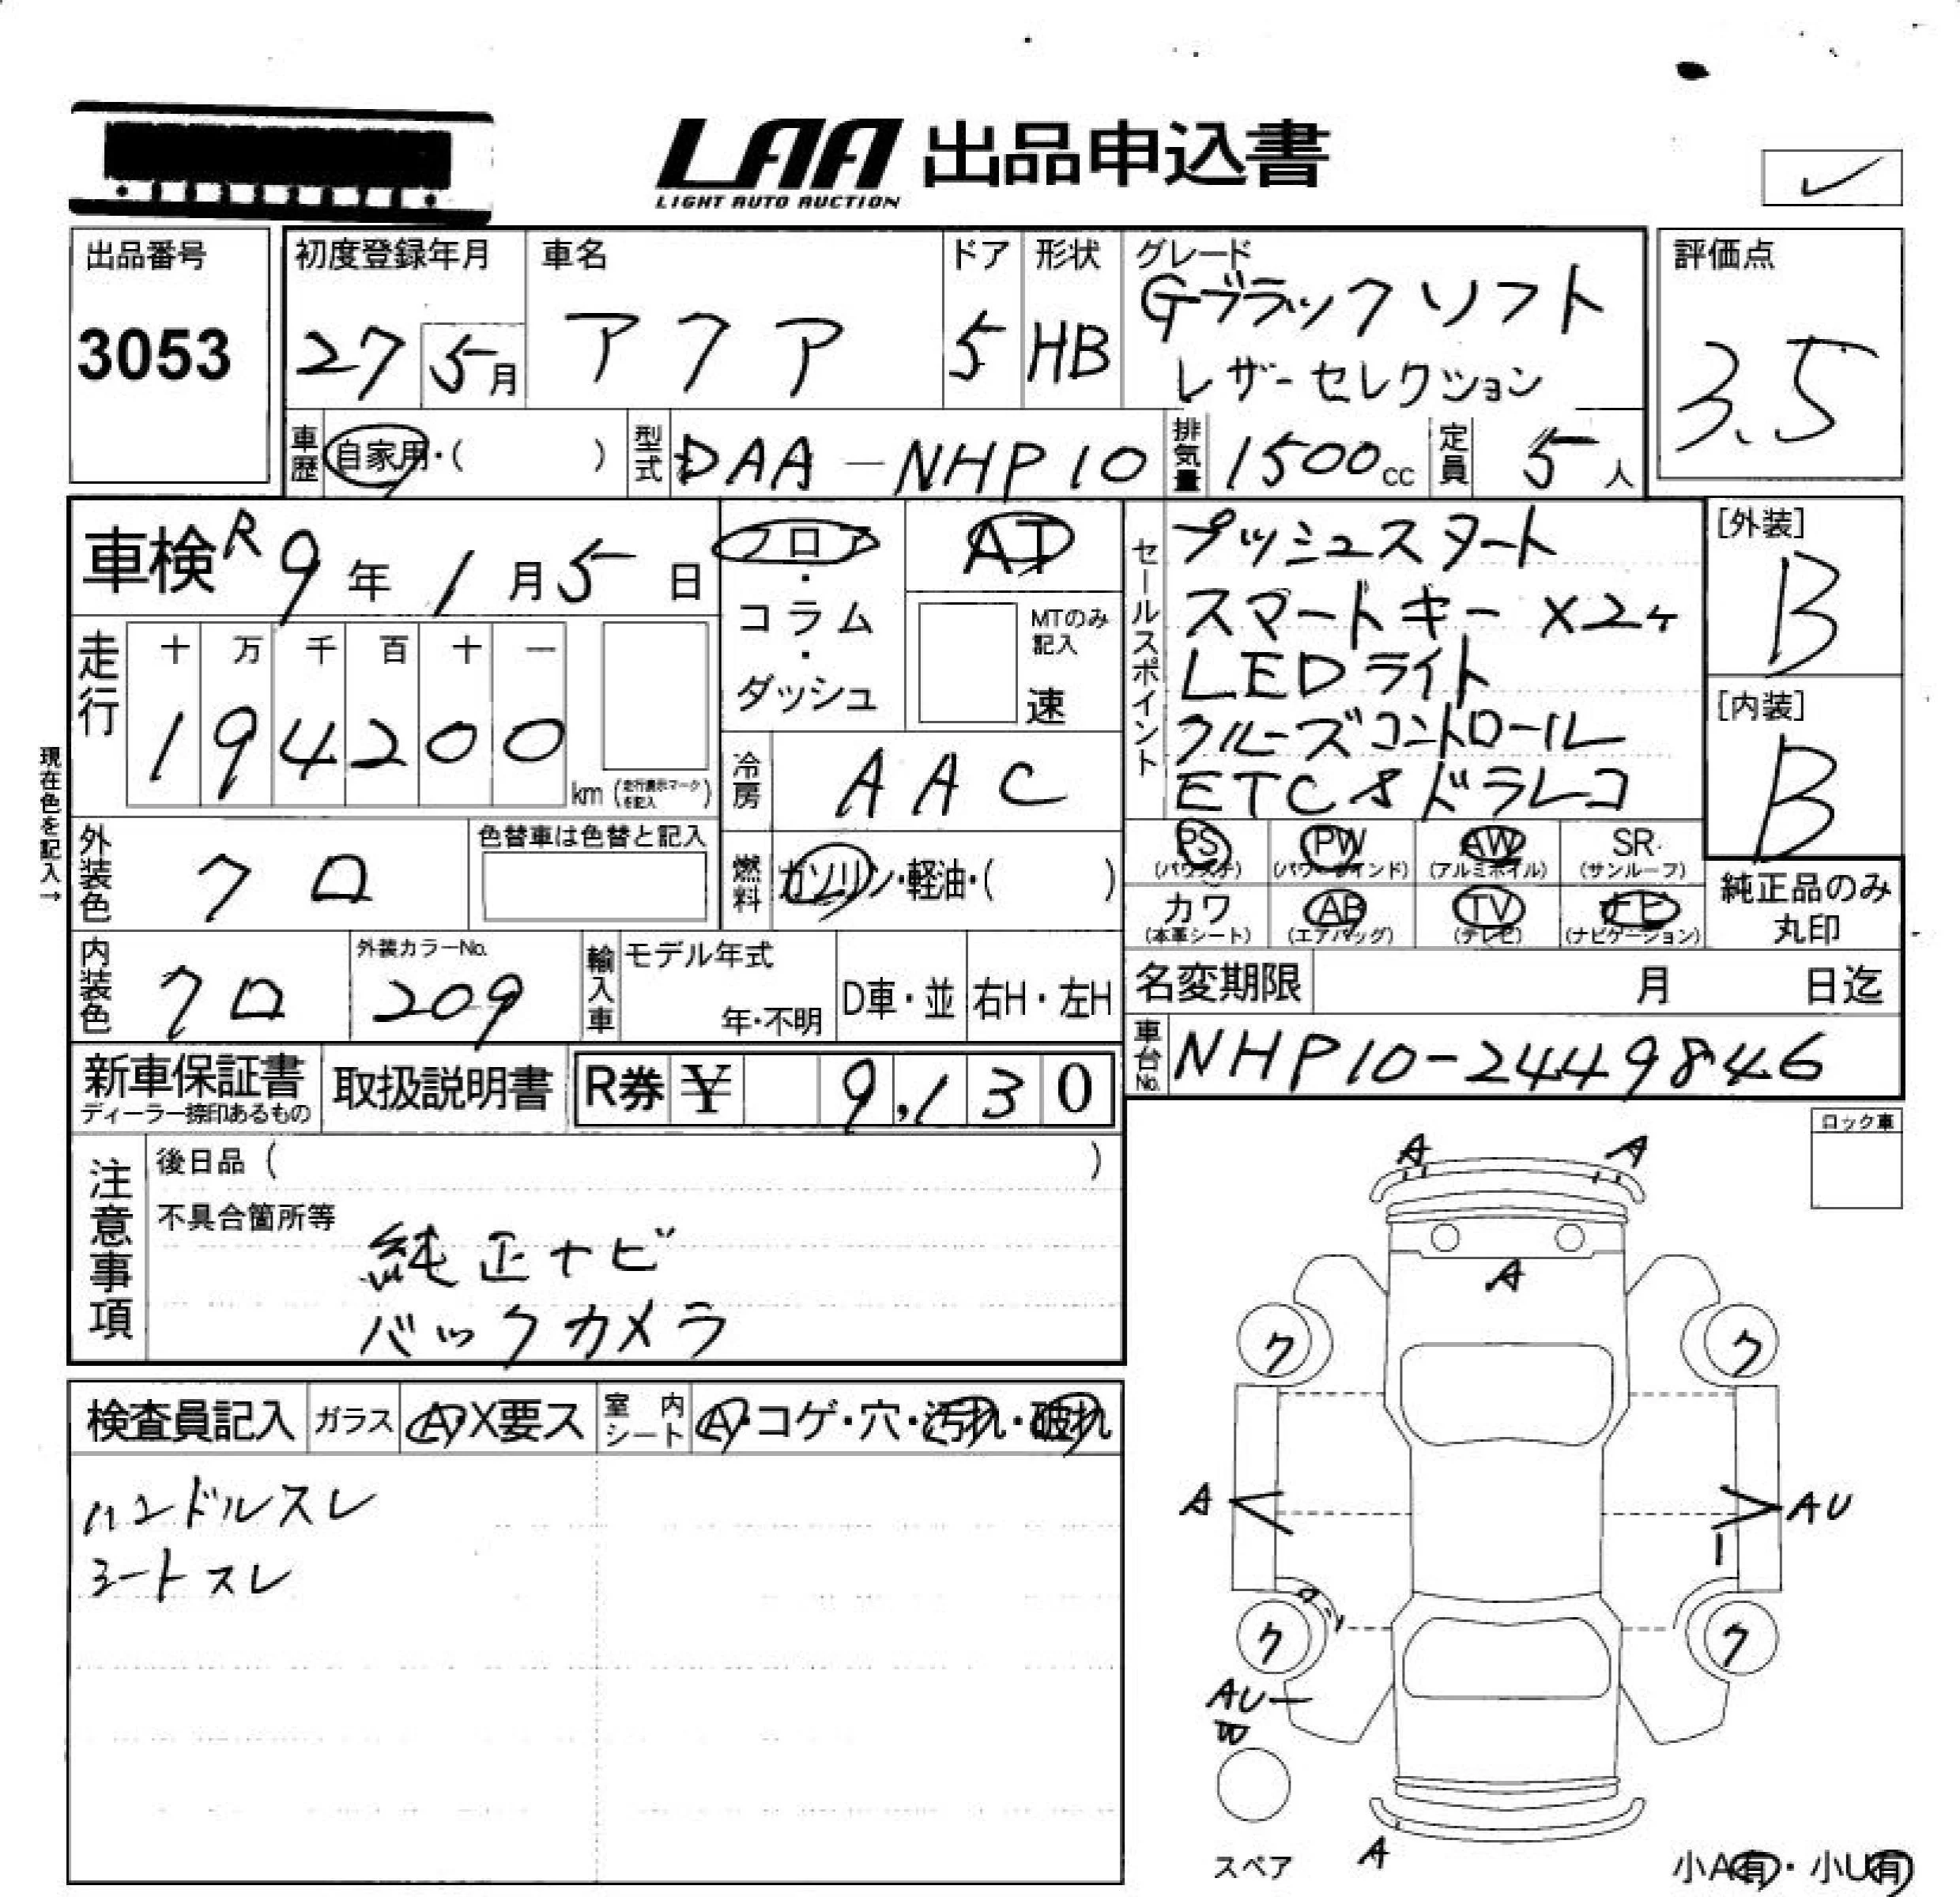 LAA 出品申込書
LIGHT AUTO AUCTION
✓
出品番号
3053
初度登録年月
27 5月
車名
アクア
ドア
5
形状
HB
グレード
Gブラックソフト
レザーセレクション
評価点
3.5
車歴 自家用・( )
型式 DAA-NHP10
排気量 1500cc
定員 5人
車検 R9年1月5日
フロア・コラム・ダッシュ
AT
MTのみ記入
速
走行
十 万 千 百 十 一
1 9 4 2 0 0
km (走行表示マークを記入)
現在色を記入→
冷房 AAC
外装色 クロ
色替車は色替と記入
燃料 ガソリン・軽油・( )
内装色 クロ
外装カラーNo. 209
輸入車
モデル年式
年・不明
D車・並
右H・左H
セールスポイント
プッシュスタート
スマートキー×2ヶ
LEDライト
クルーズコントロール
ETC &ドラレコ
[外装]
B
[内装]
B
PS (パワステ)
PW (パワーウインド)
AW (アルミホイル)
SR (サンルーフ)
カワ (本革シート)
AB (エアバッグ)
TV (テレビ)
ナビ (ナビゲーション)
純正品のみ
丸印
名変期限 月 日迄
車台No. NHP10-2449846
新車保証書
ディーラー捺印あるもの
取扱説明書
R券 ¥ 9,130
注意事項
後日品 ( )
不具合箇所等
純正ナビ
バックカメラ
ロック車
検査員記入
ガラス A・X要ス
室内シート A・コゲ・穴・汚れ・破れ
ハンドルスレ
シートスレ
A A
A
ク ク
A AU
ク ク
AU
A
スペア
小A有・小U有